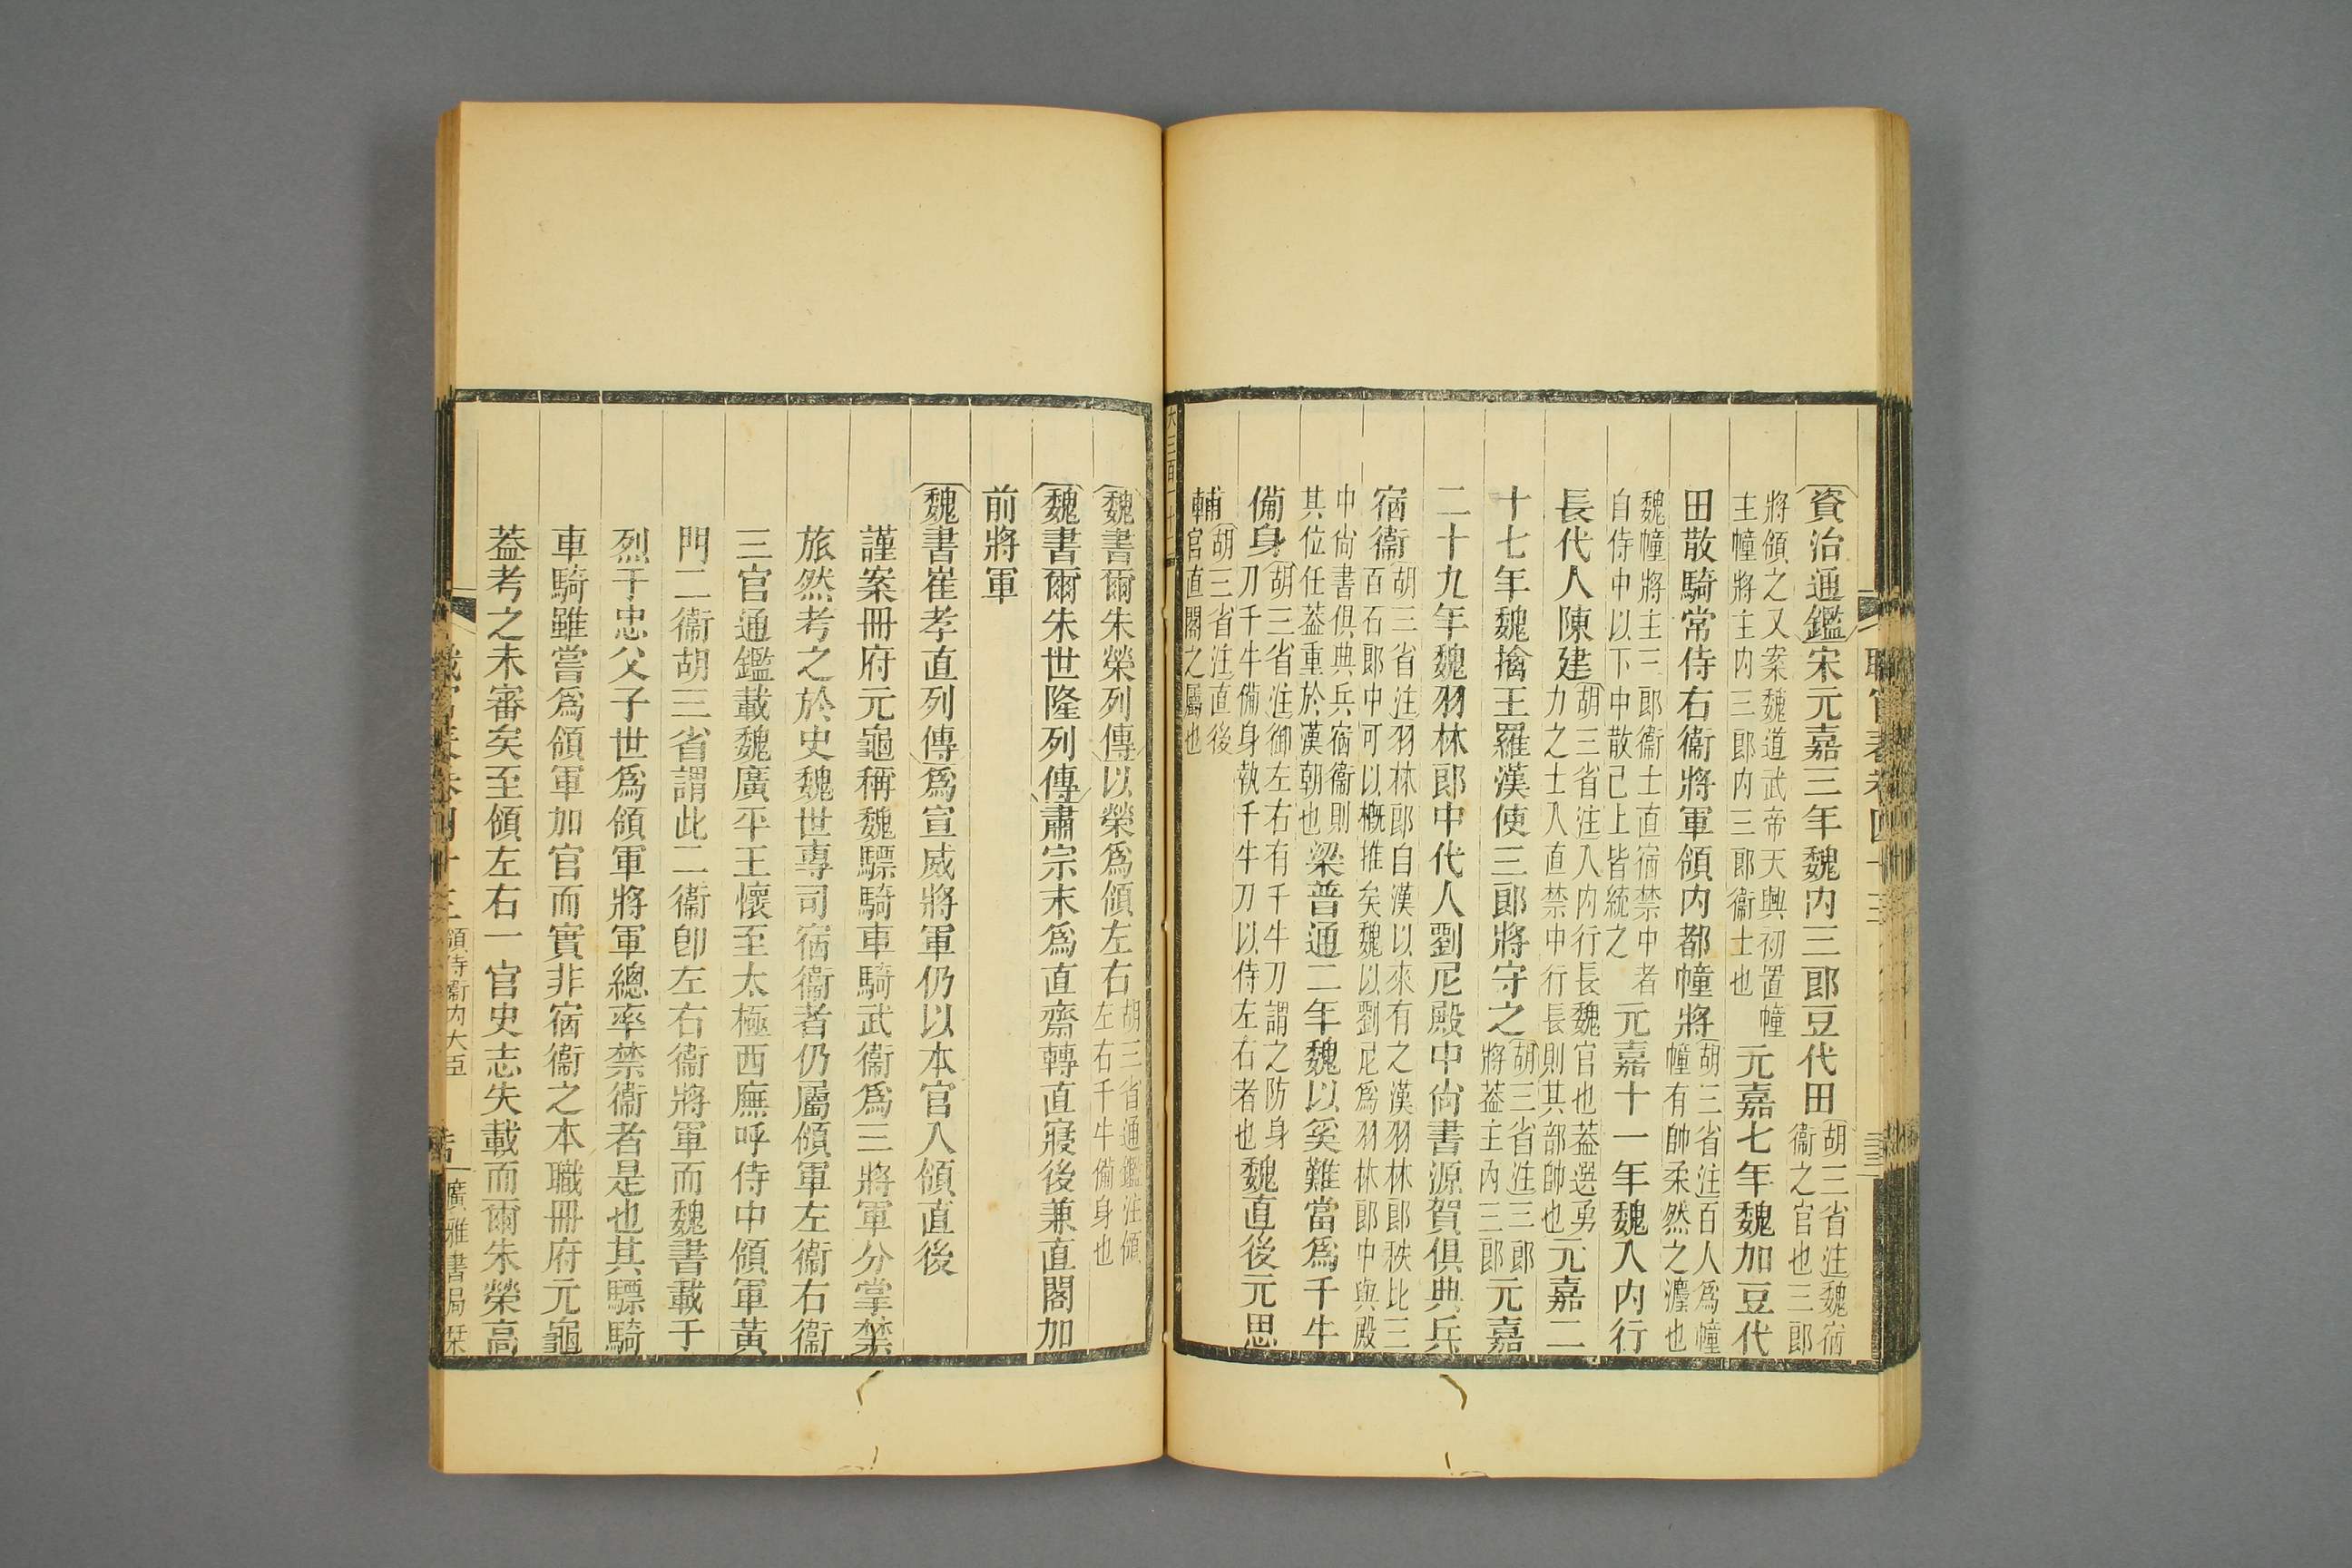 職官表卷四十三
資治通鑑宋元嘉三年魏內三郎豆代田胡三省注魏宿衞之官也三郎
將領之又案魏道武帝天興初置幢主幢將主內三郎內三郎衞士也元嘉七年魏加豆代
田散騎常侍右衞將軍領內都幢將胡三省注百人爲幢幢有帥柔然之灋也
魏幢將主三郎衞士直宿禁中者自侍中以下中散已上皆統之元嘉十一年魏入內行
長代人陳建胡三省注入內行長魏官也葢選勇力之士入直禁中行長則其部帥也元嘉二
十七年魏擒王羅漢使三郎將守之胡三省注三郎將葢主內三郎元嘉
二十九年魏羽林郎中代人劉尼殿中尙書源賀俱典兵
宿衞胡三省注羽林郎自漢以來有之漢羽林郎秩比三百石郎中可以槪推矣魏以劉尼爲羽林郎中與殿
中尙書俱典兵宿衞則其位任葢重於漢朝也梁普通二年魏以奚難當爲千牛
備身胡三省注御左右有千牛刀謂之防身刀千牛備身執千牛刀以侍左右者也魏直後元思
輔胡三省注直後官直閣之屬也
大三百一十二
魏書爾朱榮列傳以榮爲領左右胡三省通鑑注領左右千牛備身也
魏書爾朱世隆列傳肅宗末爲直齋轉直寢後兼直閣加
前將軍
魏書崔孝直列傳爲宣威將軍仍以本官入領直後
謹案冊府元龜稱魏驃騎車騎武衞爲三將軍分掌禁
旅然考之於史魏世專司宿衞者仍屬領軍左衞右衞
三官通鑑載魏廣平王懷至太極西廡呼侍中領軍黃
門二衞胡三省謂此二衞卽左右衞將軍而魏書載于
烈于忠父子世爲領軍將軍總率禁衞者是也其驃騎
車騎雖嘗爲領軍加官而實非宿衞之本職冊府元龜
葢考之未審矣至領左右一官史志失載而爾朱榮高
職官表卷四十三領侍衞內大臣 廣雅書局栞